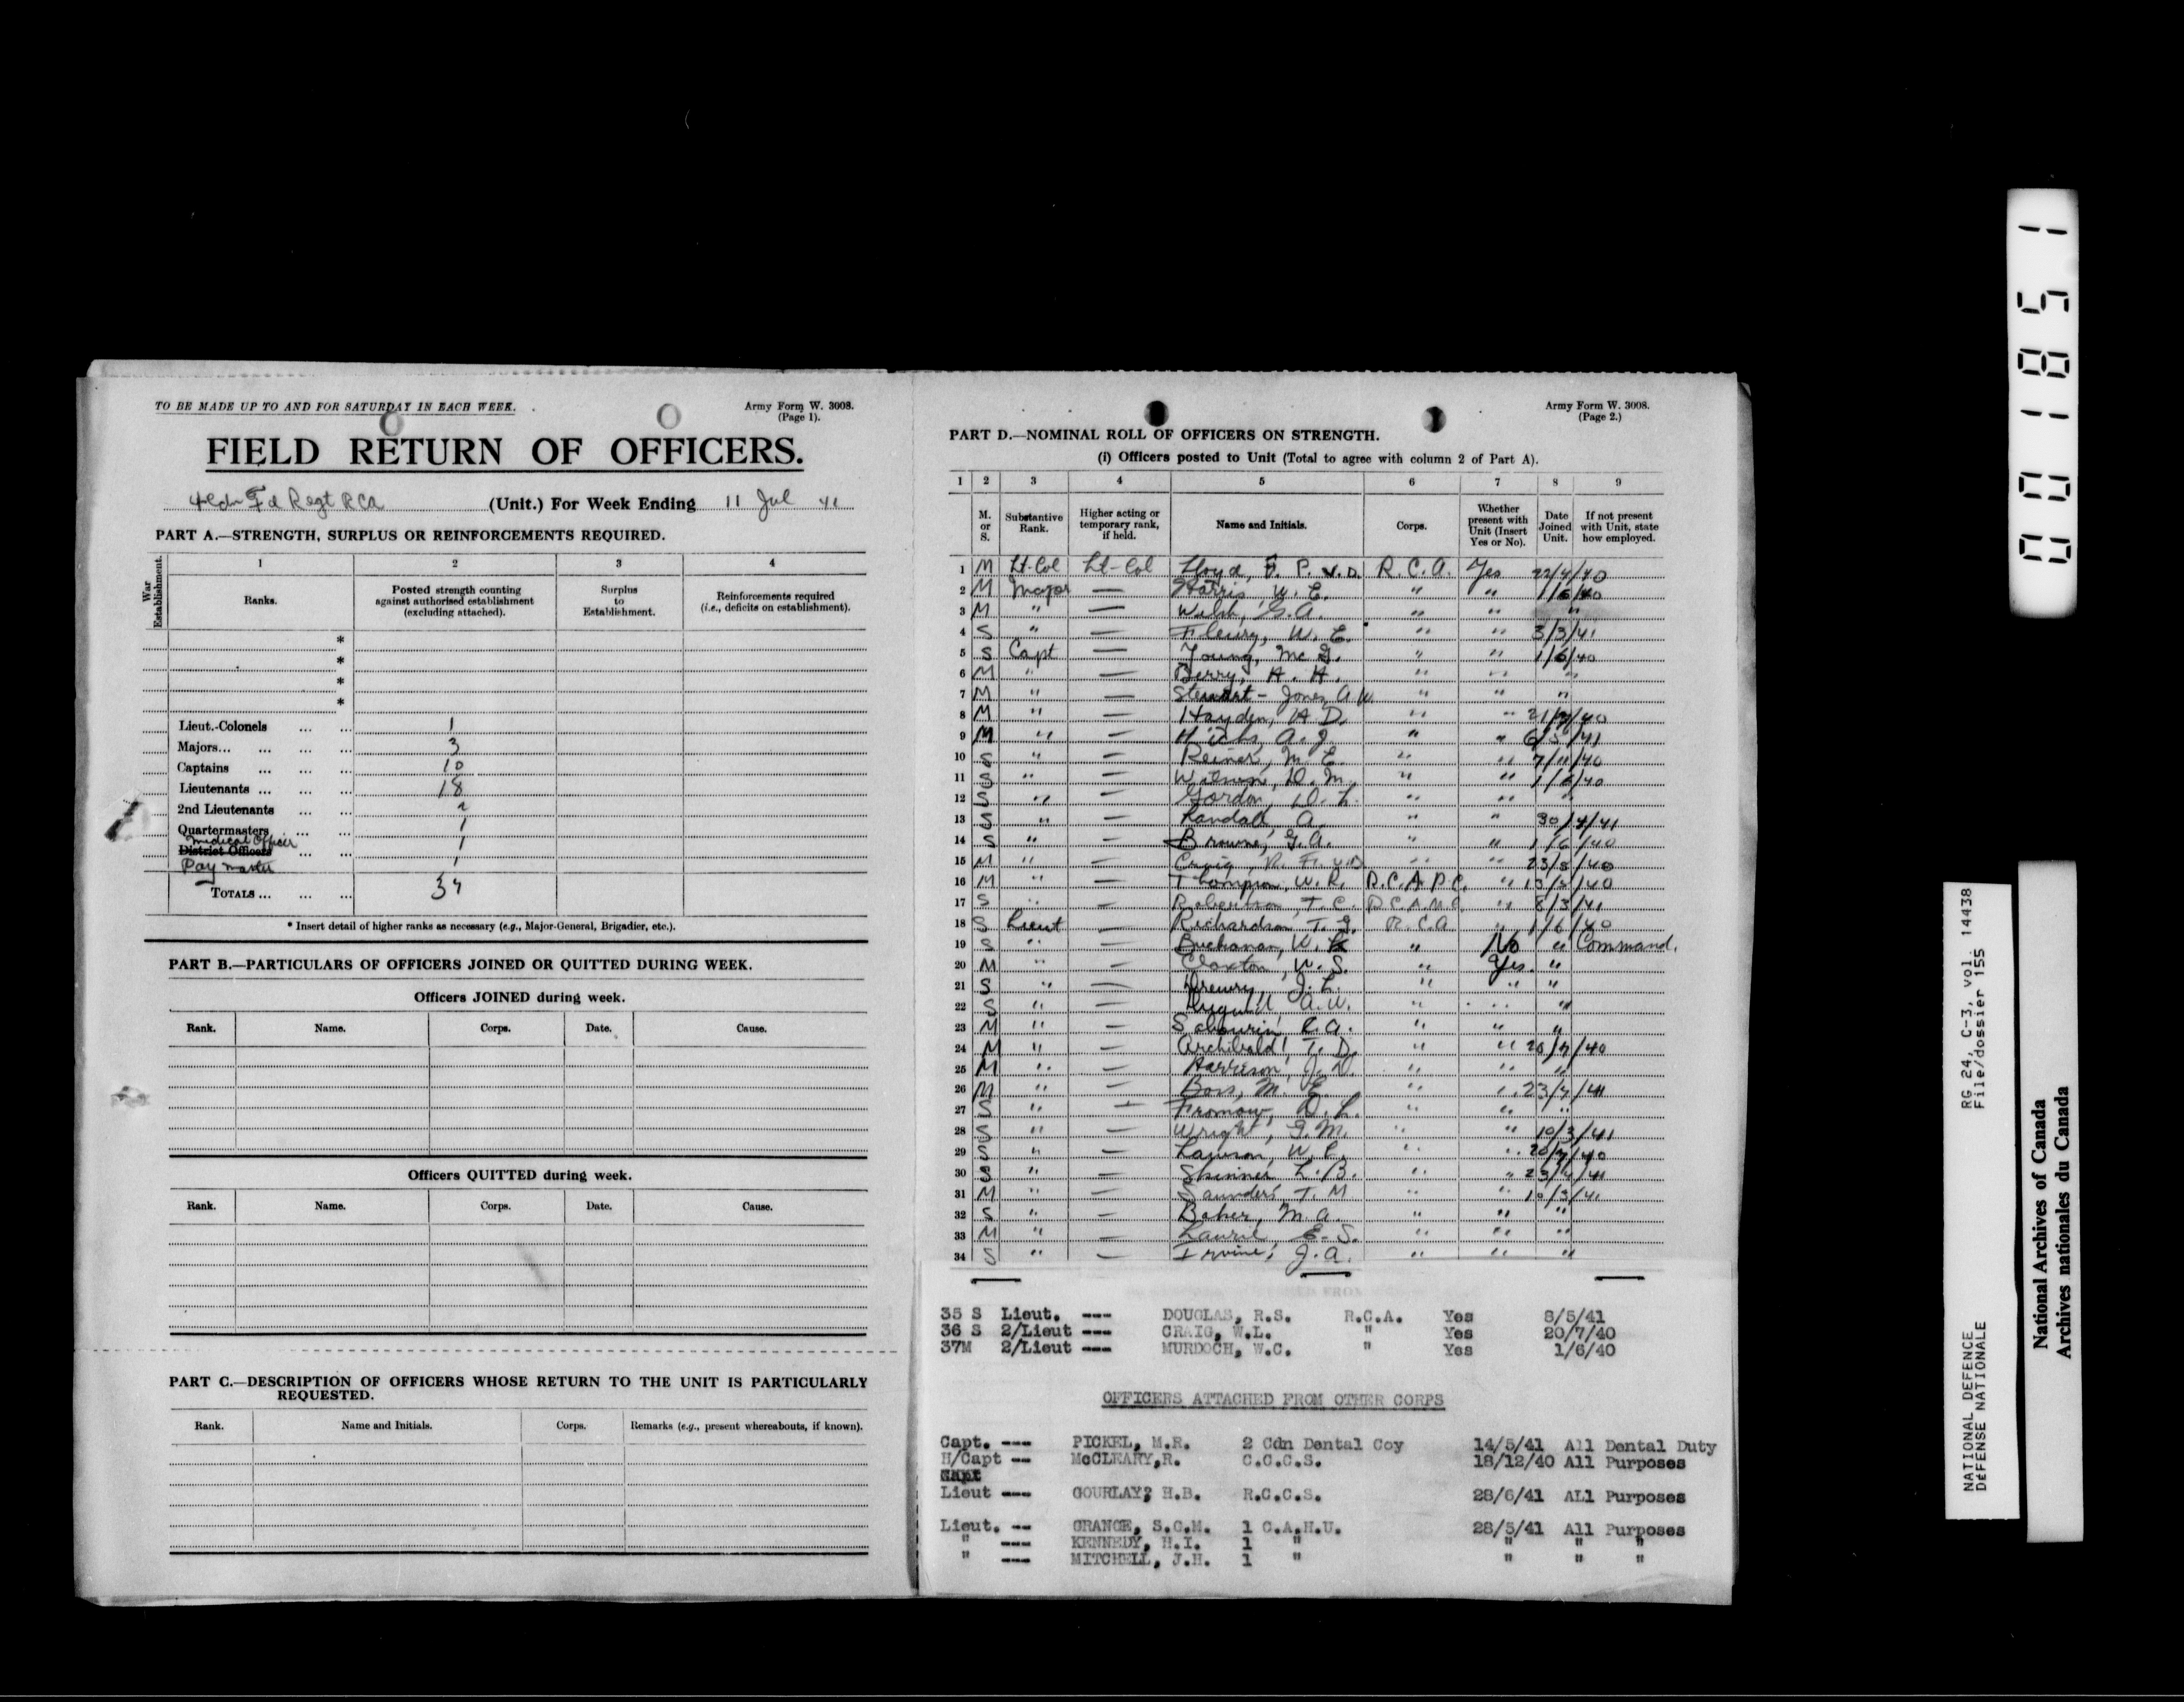 TO BE MADE UP TO AND FOR SATURDAY IN EACH WEEK.
Army Form W. 3008.
(Page 1).
FIELD RETURN OF OFFICERS.
4 Cdn Fd Regt RCA (Unit.) For Week Ending 11 Jul 41
PART A.—STRENGTH, SURPLUS OR REINFORCEMENTS REQUIRED.
War Establishment.
1 2 3 4
Ranks.
Posted strength counting against authorised establishment (excluding attached).
Surplus to Establishment.
Reinforcements required (i.e., deficits on establishment).
*
*
*
*
Lieut.-Colonels ... ... 1
Majors... ... ... ... 3
Captains ... ... ... 10
Lieutenants ... ... ... 18
2nd Lieutenants ... ... 2
Quartermasters ... ... 1
Medical Officer
District Officers ... ... 1
Pay master 1
TOTALS ... ... ... 37
* Insert detail of higher ranks as necessary (e.g., Major-General, Brigadier, etc.).
PART B.—PARTICULARS OF OFFICERS JOINED OR QUITTED DURING WEEK.
Officers JOINED during week.
Rank. Name. Corps. Date. Cause.
Officers QUITTED during week.
Rank. Name. Corps. Date. Cause.
PART C.—DESCRIPTION OF OFFICERS WHOSE RETURN TO THE UNIT IS PARTICULARLY
REQUESTED.
Rank. Name and Initials. Corps. Remarks (e.g., present whereabouts, if known).
Army Form W. 3008.
(Page 2.)
PART D.—NOMINAL ROLL OF OFFICERS ON STRENGTH.
(i) Officers posted to Unit (Total to agree with column 2 of Part A).
1 2 3 4 5 6 7 8 9
M. or S.
Substantive Rank.
Higher acting or temporary rank, if held.
Name and Initials.
Corps.
Whether present with Unit (Insert Yes or No).
Date Joined Unit.
If not present with Unit, state how employed.
1 M Lt-Col Lt-Col Lloyd, F. P. V.D. R.C.A. Yes 22/4/40
2 M Major — Harris, W. E. " " 1/6/40
3 M " — Welsh, G.A. " " "
4 S " — Fleury, W. E. " " 3/3/41
5 S Capt — Young, Mc G. " " 1/6/40
6 M " — Berry, H. H. " " "
7 M " — Stewart-Jones, A.W. " " "
8 M " — Hayden, H D. " " 21/7/40
9 M " — Hicks, A. J. " " 6/5/41
10 S " — Reiner, M. E. " " 7/11/40
11 S " — Watson, D. M. " " 1/6/40
12 S " — Gordon, D. L. " " "
13 S " — Randall, A. " " 30/4/41
14 S " — Browne, G.A. " " 1/6/40
15 M " — Craig, " " 23/8/40
16 M " — Thompson, W. R. R.C.A.P.C. " 13/ /40
17 S " — Robertson, T. C. R.C.A.M.C. " 8/3/41
18 S Lieut — Richardson, T. G. R.C.A " 1/6/40
19 S " — Buchanan, W. " No " Command.
20 M " — Claxton, W. S. " Yes "
21 S " — Drewry, J. L. " " "
22 S " — A. W. " " "
23 M " — Sabourin, R.A. " " "
24 M " — Archibald, T. D. " " 20/7/40
25 M " — Harrison, J. D. " " "
26 M " — Boss, M. E. " " 23/ /41
27 S " — Fromow, D. L. " " "
28 S " — Wright, G. M. " " 10/3/41
29 S " — Lawson, W. E. " " 20/7/40
30 S " — Skinner L. B. " " 23/ /41
31 M " — Saunders, T. M " " 10/3/41
32 S " — Baker, M. A. " " "
33 M " — Laurie E. S. " " "
34 S " — Irvine, J. A. " " "
35 S Lieut. --- DOUGLAS, R.S. R.C.A. Yes 8/5/41
36 S 2/Lieut --- CRAIG, W.L. " Yes 20/7/40
37M 2/Lieut --- MURDOCH, W.C. " Yes 1/6/40
OFFICERS ATTACHED FROM OTHER CORPS
Capt. --- PICKEL, M.R. 2 Cdn Dental Coy 14/5/41 All Dental Duty
H/Capt -- McCLEARY,R. C.C.C.S. 18/12/40 All Purposes
Lieut --- GOURLAY? H.B. R.C.C.S. 28/6/41 ALl Purposes
Lieut. -- GRANGE, S.C.M. 1 C.A.H.U. 28/5/41 All Purposes
" --- KENNEDY, H.I. 1 " " " "
" --- MITCHELL, J.H. 1 " " " "
001851
NATIONAL DEFENCE RG 24, C-3, vol. 14438
DÉFENSE NATIONALE File/dossier 155
National Archives of Canada
Archives nationales du Canada